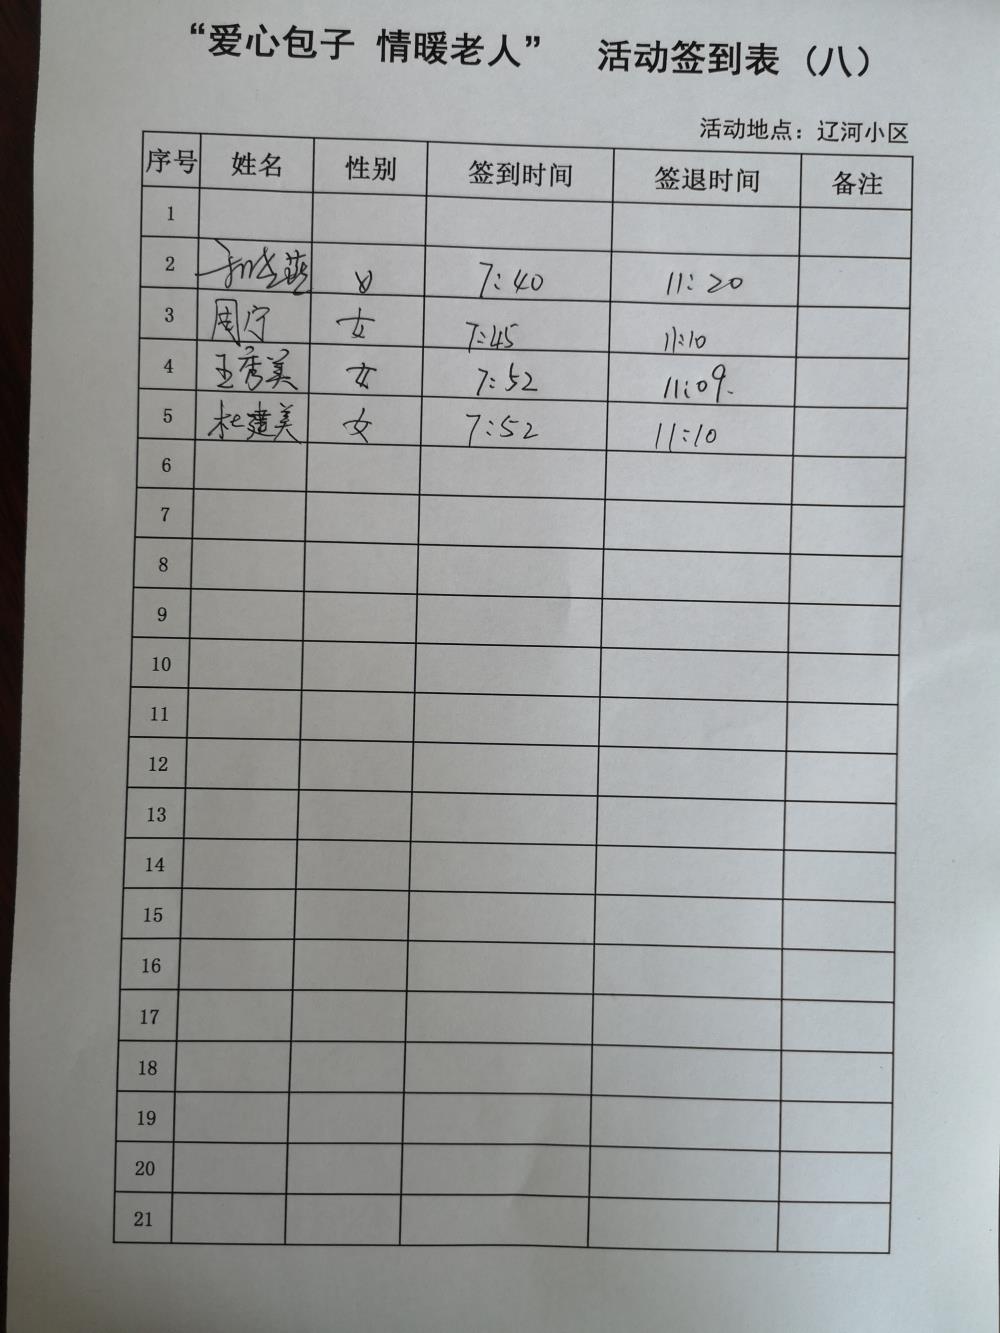 “爱心包子 情暖老人” 活动签到表（八）
活动地点：辽河小区
序号 姓名 性别 签到时间 签退时间 备注
1
2 女 7:40 11:20
3 周宁 女 7:45 11:10
4 王秀美 女 7:52 11:09.
5 杜建美 女 7:52 11:10
6
7
8
9
10
11
12
13
14
15
16
17
18
19
20
21